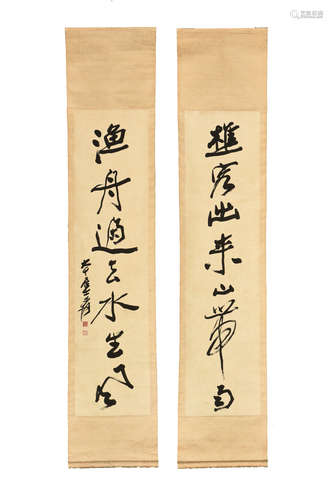 樵客出来山帶雨
漁舟過去水生風
大千居士爰